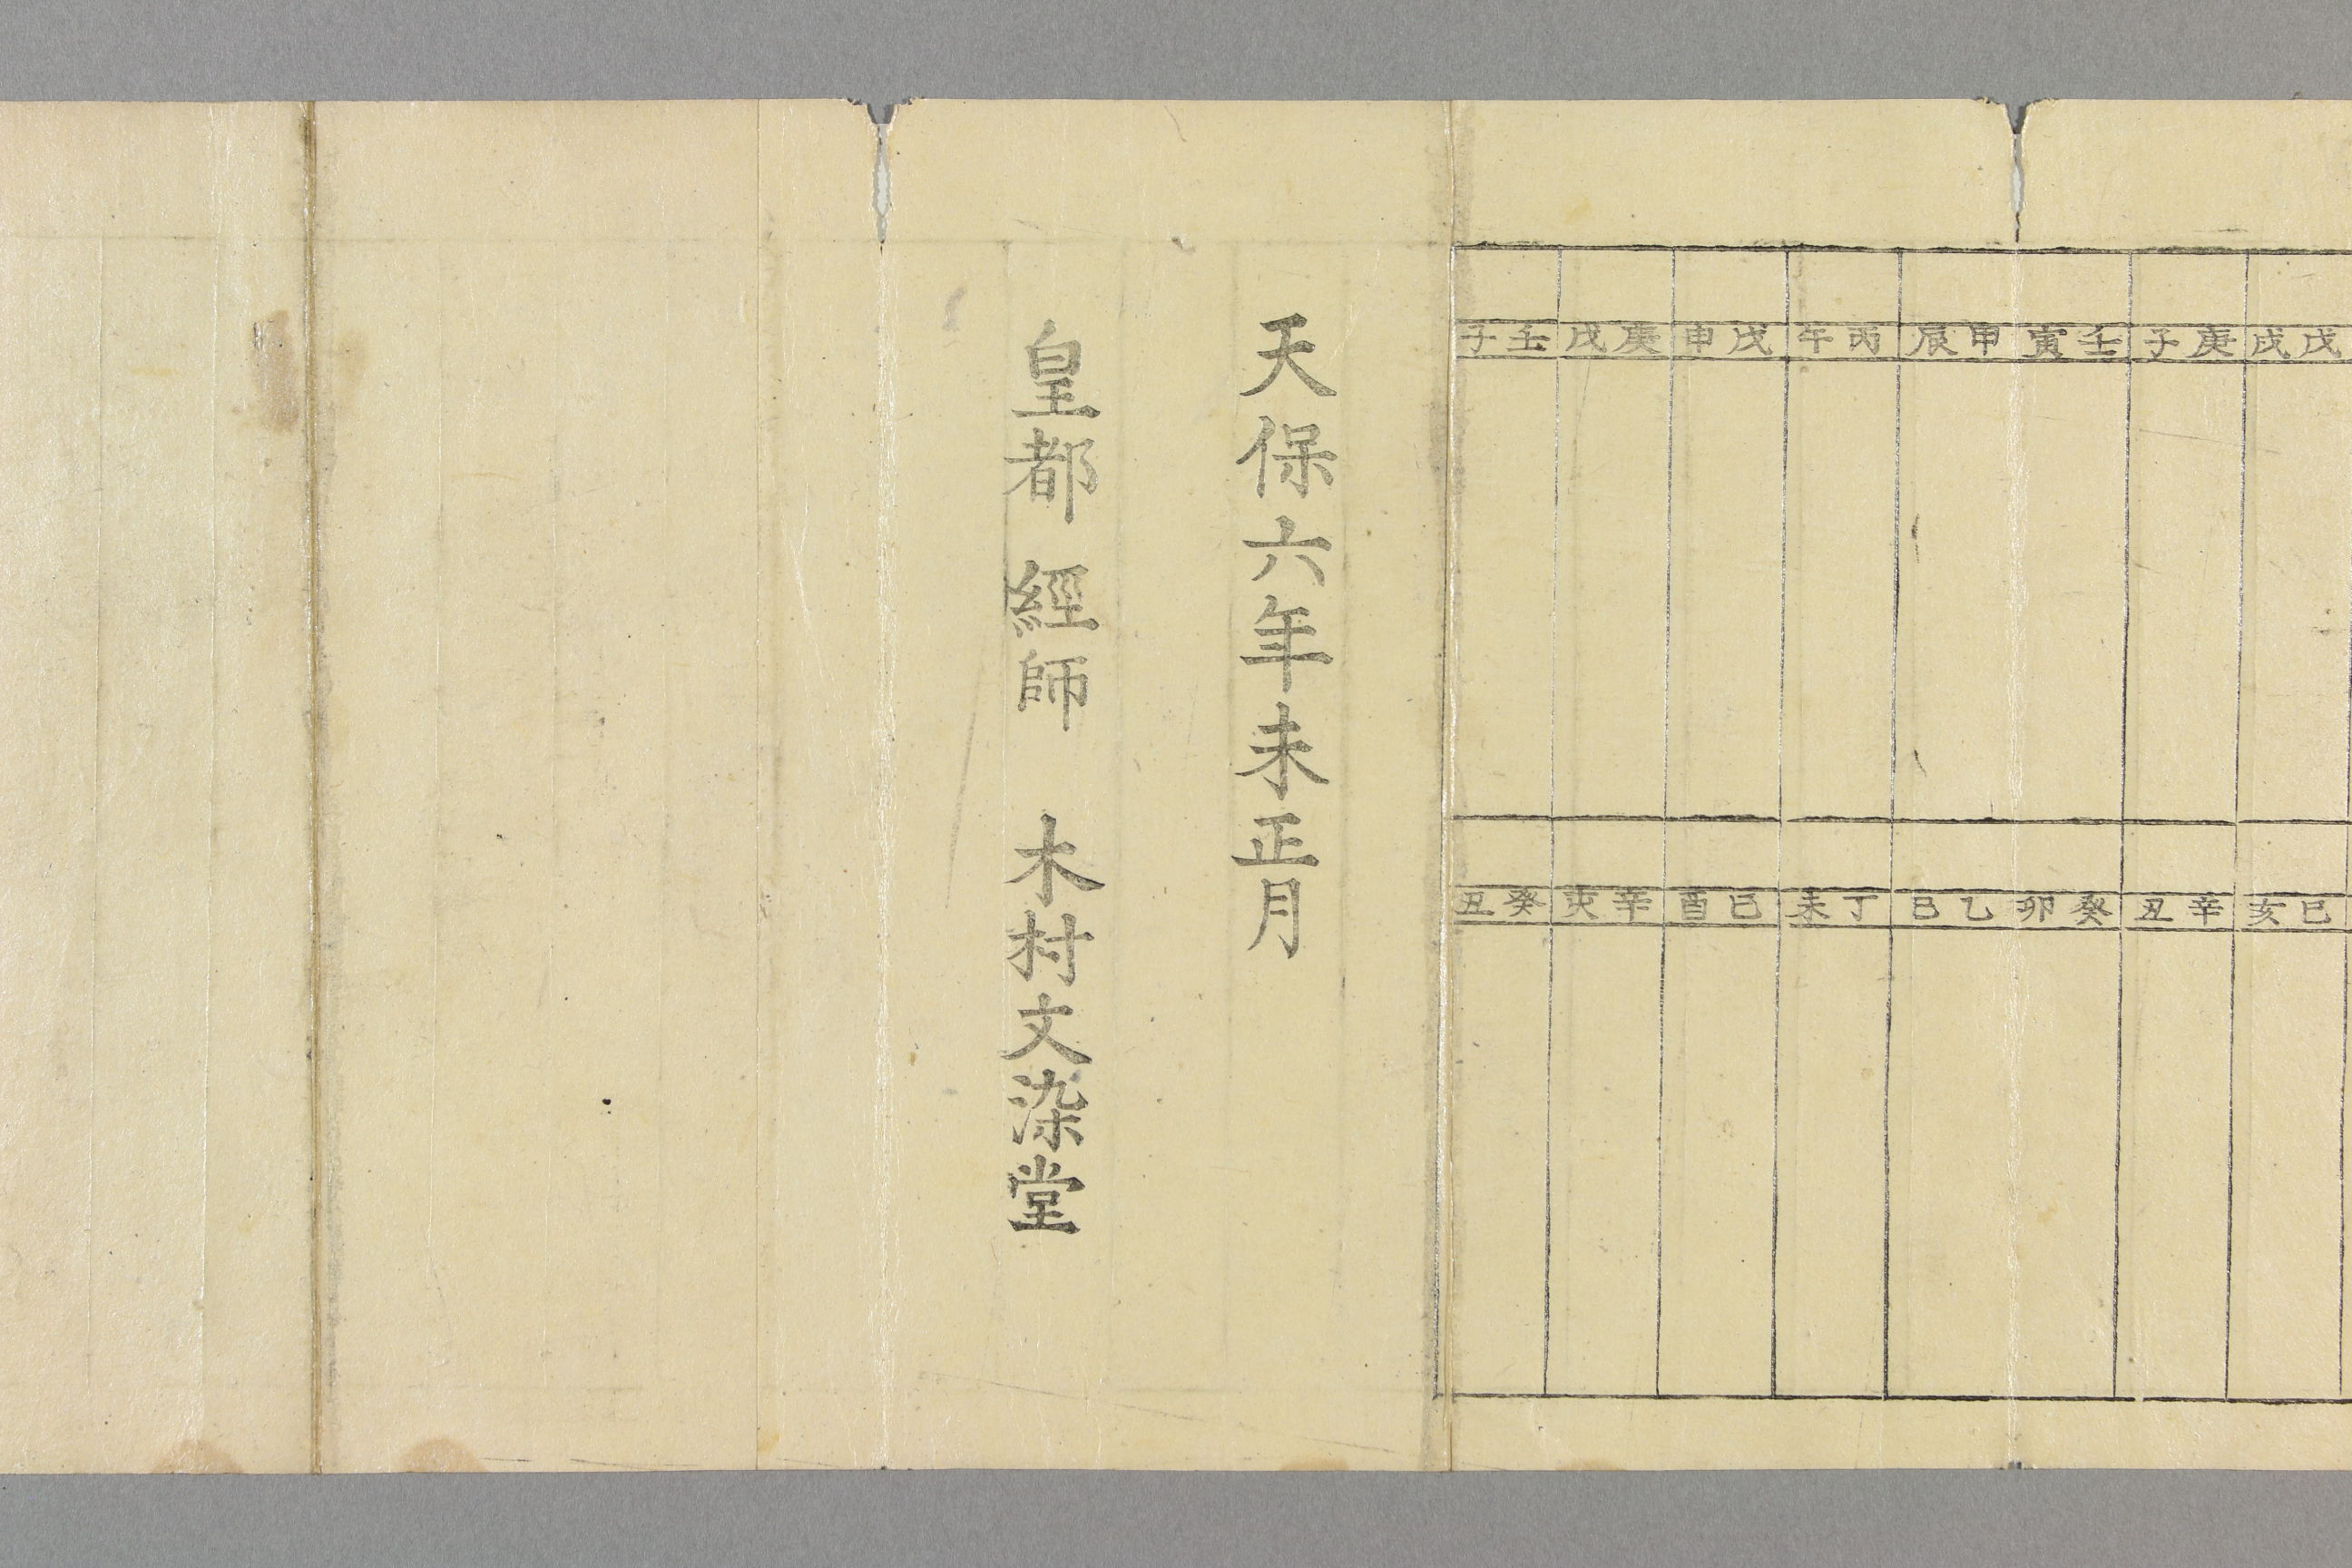 戊戌 庚子 壬寅 甲辰 丙午 戊申 庚戌 壬子
己亥 辛丑 癸卯 乙巳 丁未 己酉 辛亥 癸丑
天保六年未正月
皇都 經師 木村文染堂